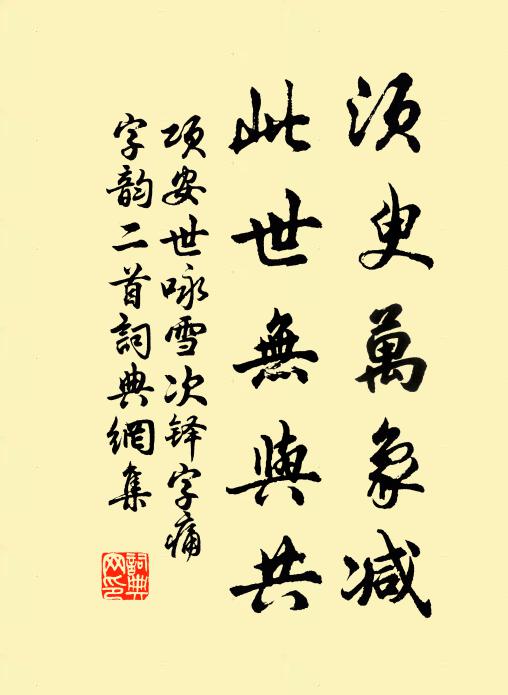 須臾萬象减
此世無與共
项安世咏雪次铎字痛
字韵二首詞典網集
詞典網印